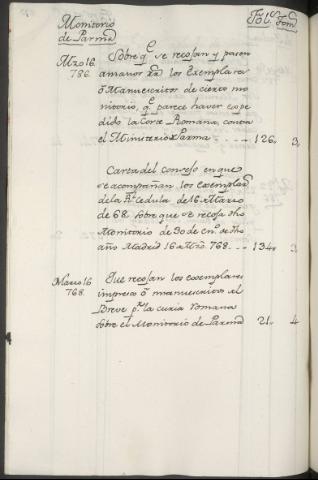 Monitorio
de Parma
Fol.s Tom.
Mzo 16
786.
Sobre q.e se recojan y pasen
a manos Rs. los Exemplares
ò Manuescritos de cierto mo
nitorio, q.e parece haver expe
dido la Corte Romana, contra
el Ministerio de Parma - - - - 126. 3.
Carta del Consejo en que
se acompañan los exemplar.s
de la R.l cedula de 16 de Marzo
de 68. sobre que se recoja dho
Monitorio de 30 de en.o de dho
año Madrid 16 Mzo 768. - - 134. 3
Marzo 16
768.
Que recojan los exemplares
impresos ò manuescritos del
Breve p.r la curia romana
sobre el Monitorio de Parma 21. 4